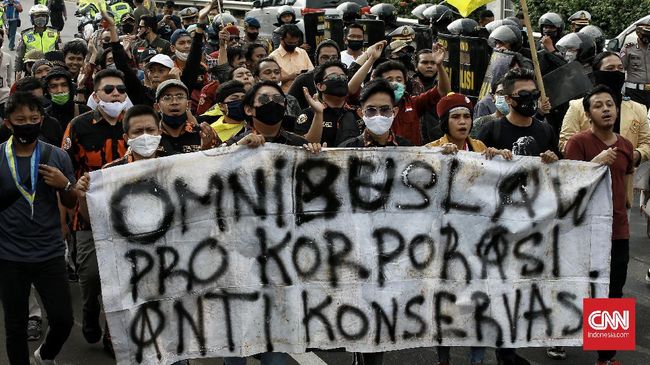 OMNIBUSLAW
PRO KORPORASI
ANTI KONSERVASI
CNN
Indonesia.com